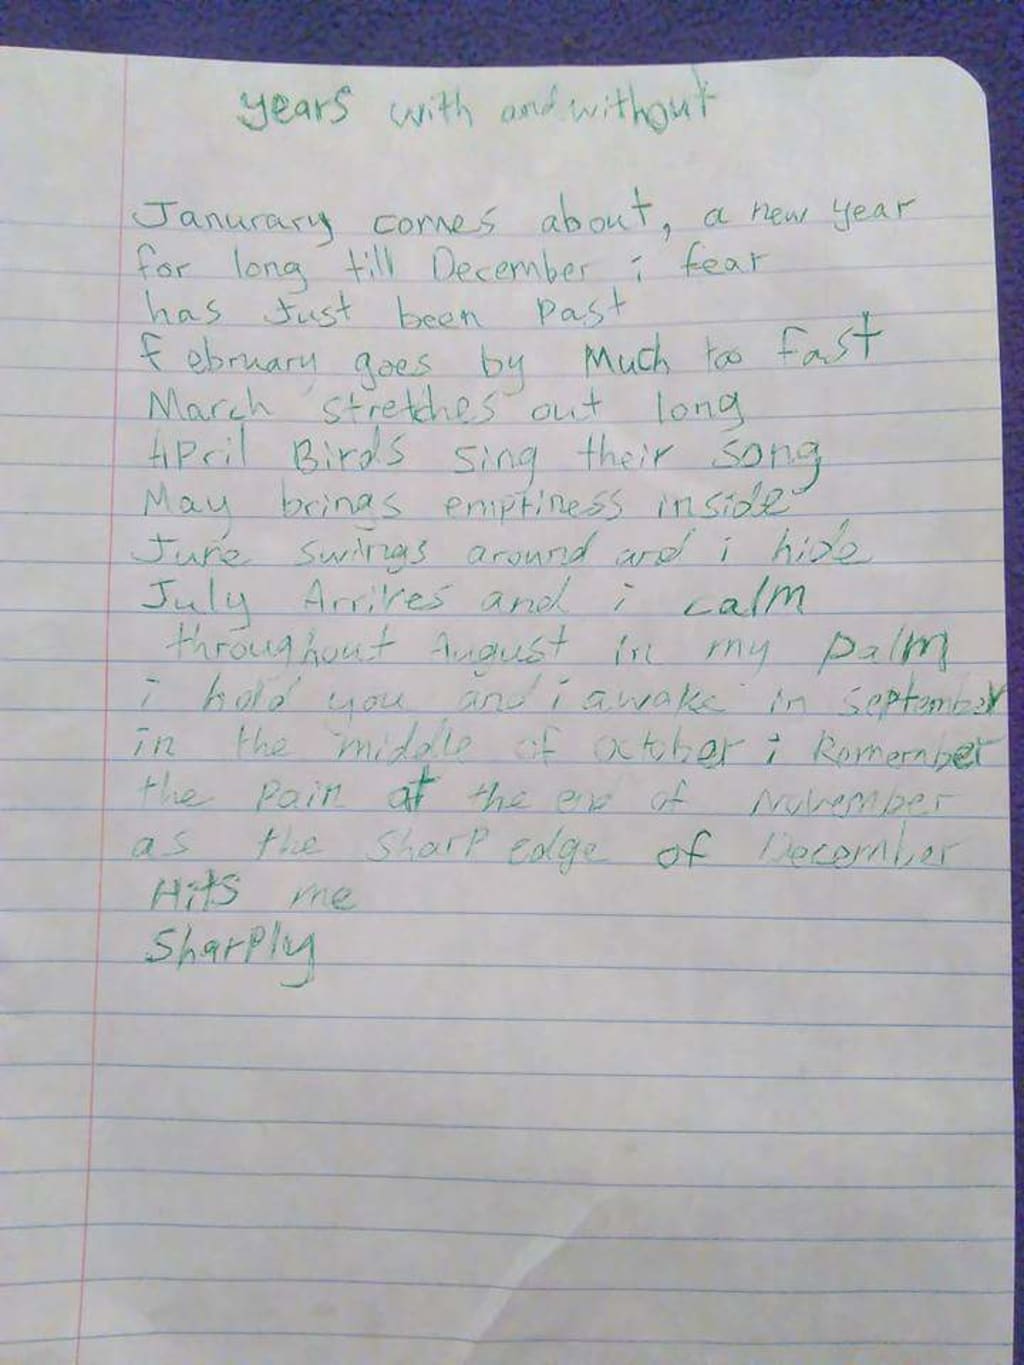 years with and without
Janurary comes about, a new year
for long till December i fear
has Just been past
february goes by Much too fast
March stretches out long
April Birds sing their song
May brings emptiness inside
June swings around and i hide
July Arrives and i calm
throughout August in my palm
i hold you and i awake in september
in the middle of october i Remember
the pain at the end of November
as the sharp edge of December
Hits me
Sharply